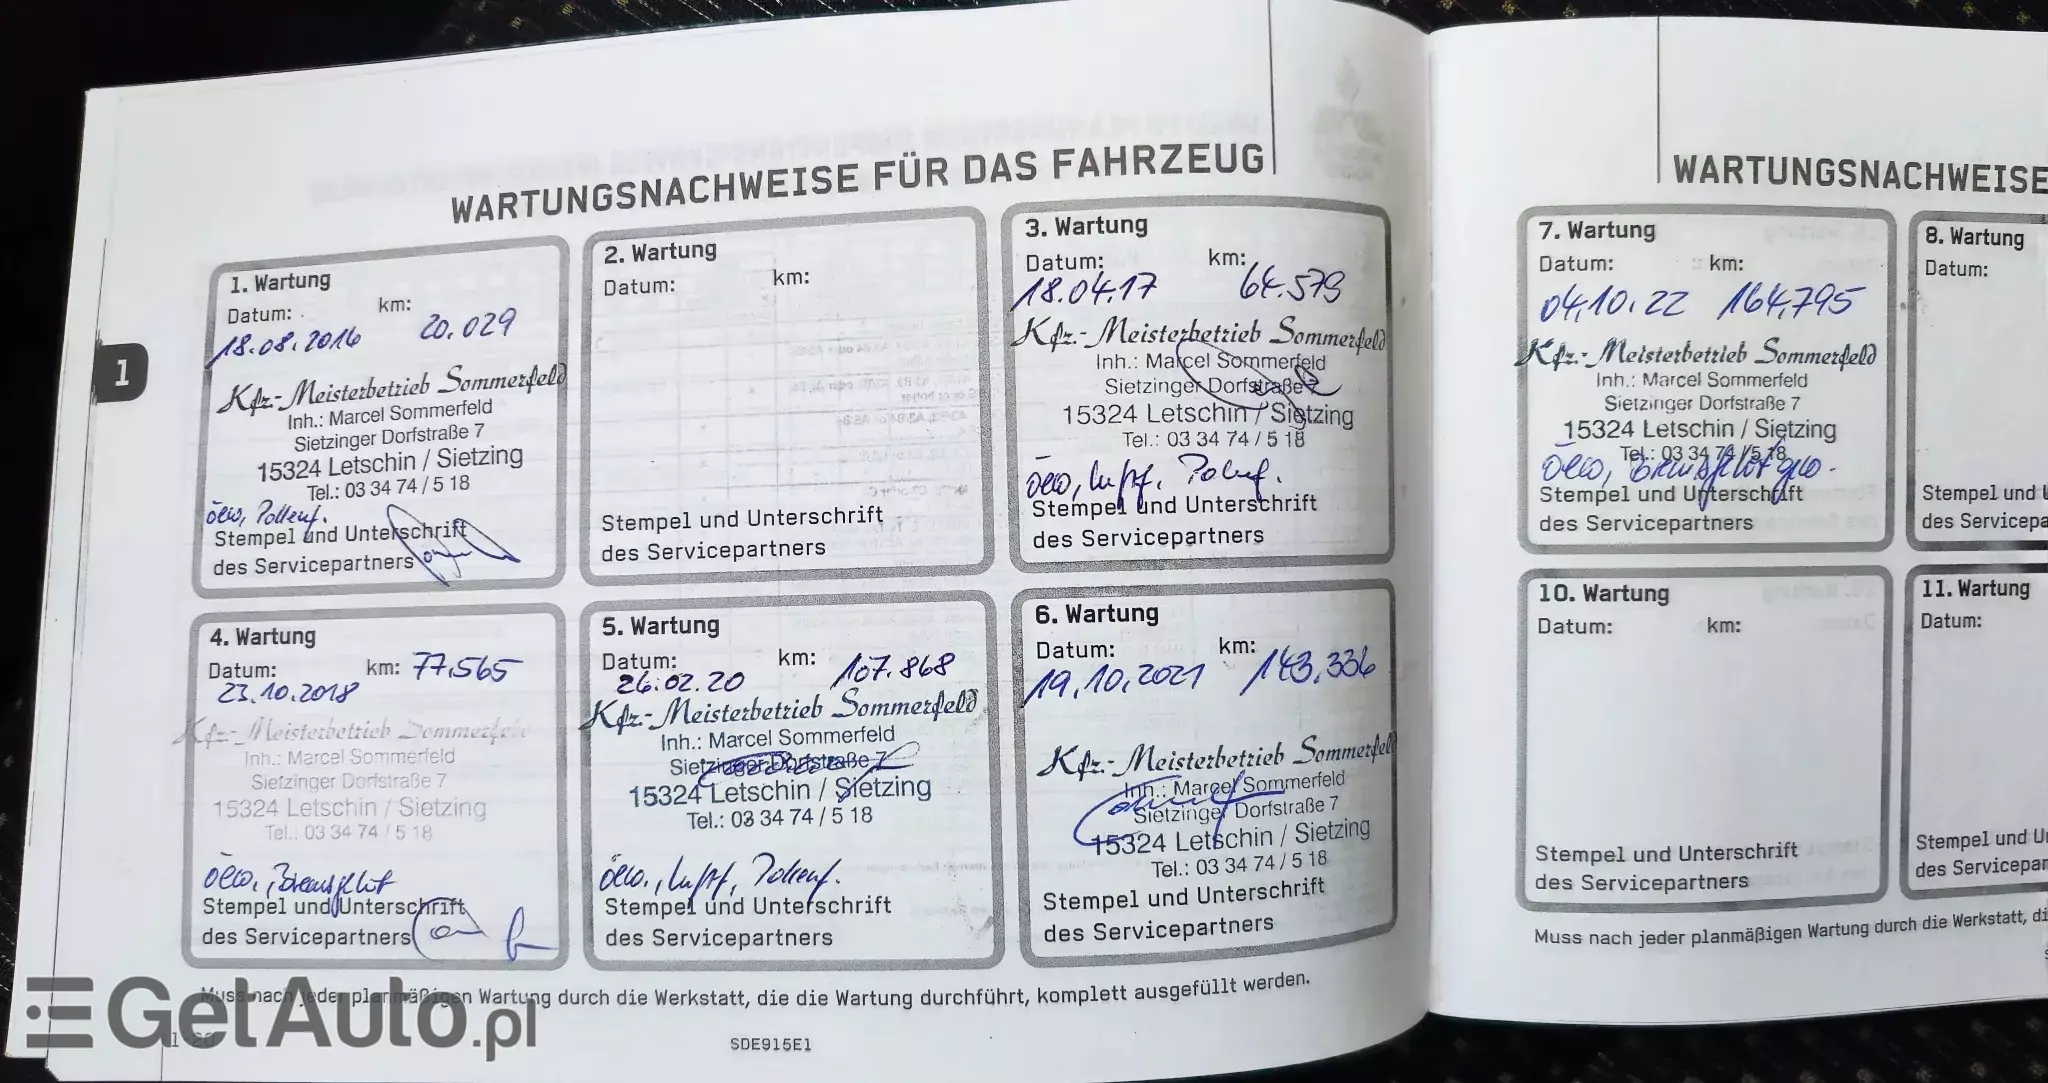 WARTUNGSNACHWEISE FÜR DAS FAHRZEUG
1
1. Wartung
Datum: km:
18.08.2016 20.029
Kfz.-Meisterbetrieb Sommerfeld
Inh.: Marcel Sommerfeld
Sietzinger Dorfstraße 7
15324 Letschin / Sietzing
Tel.: 03 34 74 / 5 18
Ölw, Pollenf.
Stempel und Unterschrift
des Servicepartners
2. Wartung
Datum: km:
Stempel und Unterschrift
des Servicepartners
3. Wartung
Datum: km:
18.04.17 64.579
Kfz.-Meisterbetrieb Sommerfeld
Inh.: Marcel Sommerfeld
Sietzinger Dorfstraße 7
15324 Letschin / Sietzing
Tel.: 03 34 74 / 5 18
Ölw, Luftf,
Stempel und Unterschrift
des Servicepartners
4. Wartung
Datum: km: 77.565
23.10.2018
Kfz.-Meisterbetrieb Sommerfeld
Inh.: Marcel Sommerfeld
Sietzinger Dorfstraße 7
15324 Letschin / Sietzing
Tel.: 03 34 74 / 5 18
Ölw.,
Stempel und Unterschrift
des Servicepartners
5. Wartung
Datum: km: 107.868
26.02.20
Kfz.-Meisterbetrieb Sommerfeld
Inh.: Marcel Sommerfeld
Sietzinger Dorfstraße 7
15324 Letschin / Sietzing
Tel.: 03 34 74 / 5 18
Ölw., Luftf, Pollenf.
Stempel und Unterschrift
des Servicepartners
6. Wartung
Datum: km:
19.10.2021 143.336
Kfz.-Meisterbetrieb Sommerfeld
Inh.: Marcel Sommerfeld
Sietzinger Dorfstraße 7
15324 Letschin / Sietzing
Tel.: 03 34 74 / 5 18
Stempel und Unterschrift
des Servicepartners
Muss nach jeder planmäßigen Wartung durch die Werkstatt, die die Wartung durchführt, komplett ausgefüllt werden.
SDE915E1
WARTUNGSNACHWEISE
7. Wartung
Datum: km:
04.10.22 164.795
Kfz.-Meisterbetrieb Sommerfeld
Inh.: Marcel Sommerfeld
Sietzinger Dorfstraße 7
15324 Letschin / Sietzing
Tel.: 03 34 74 / 5 18
Ölw,
Stempel und Unterschrift
des Servicepartners
8. Wartung
Datum:
Stempel und
des Servicepa
10. Wartung
Datum: km:
Stempel und Unterschrift
des Servicepartners
11. Wartung
Datum:
Stempel und
des Servicepar
Muss nach jeder planmäßigen Wartung durch die Werkstatt, di
GetAuto.pl